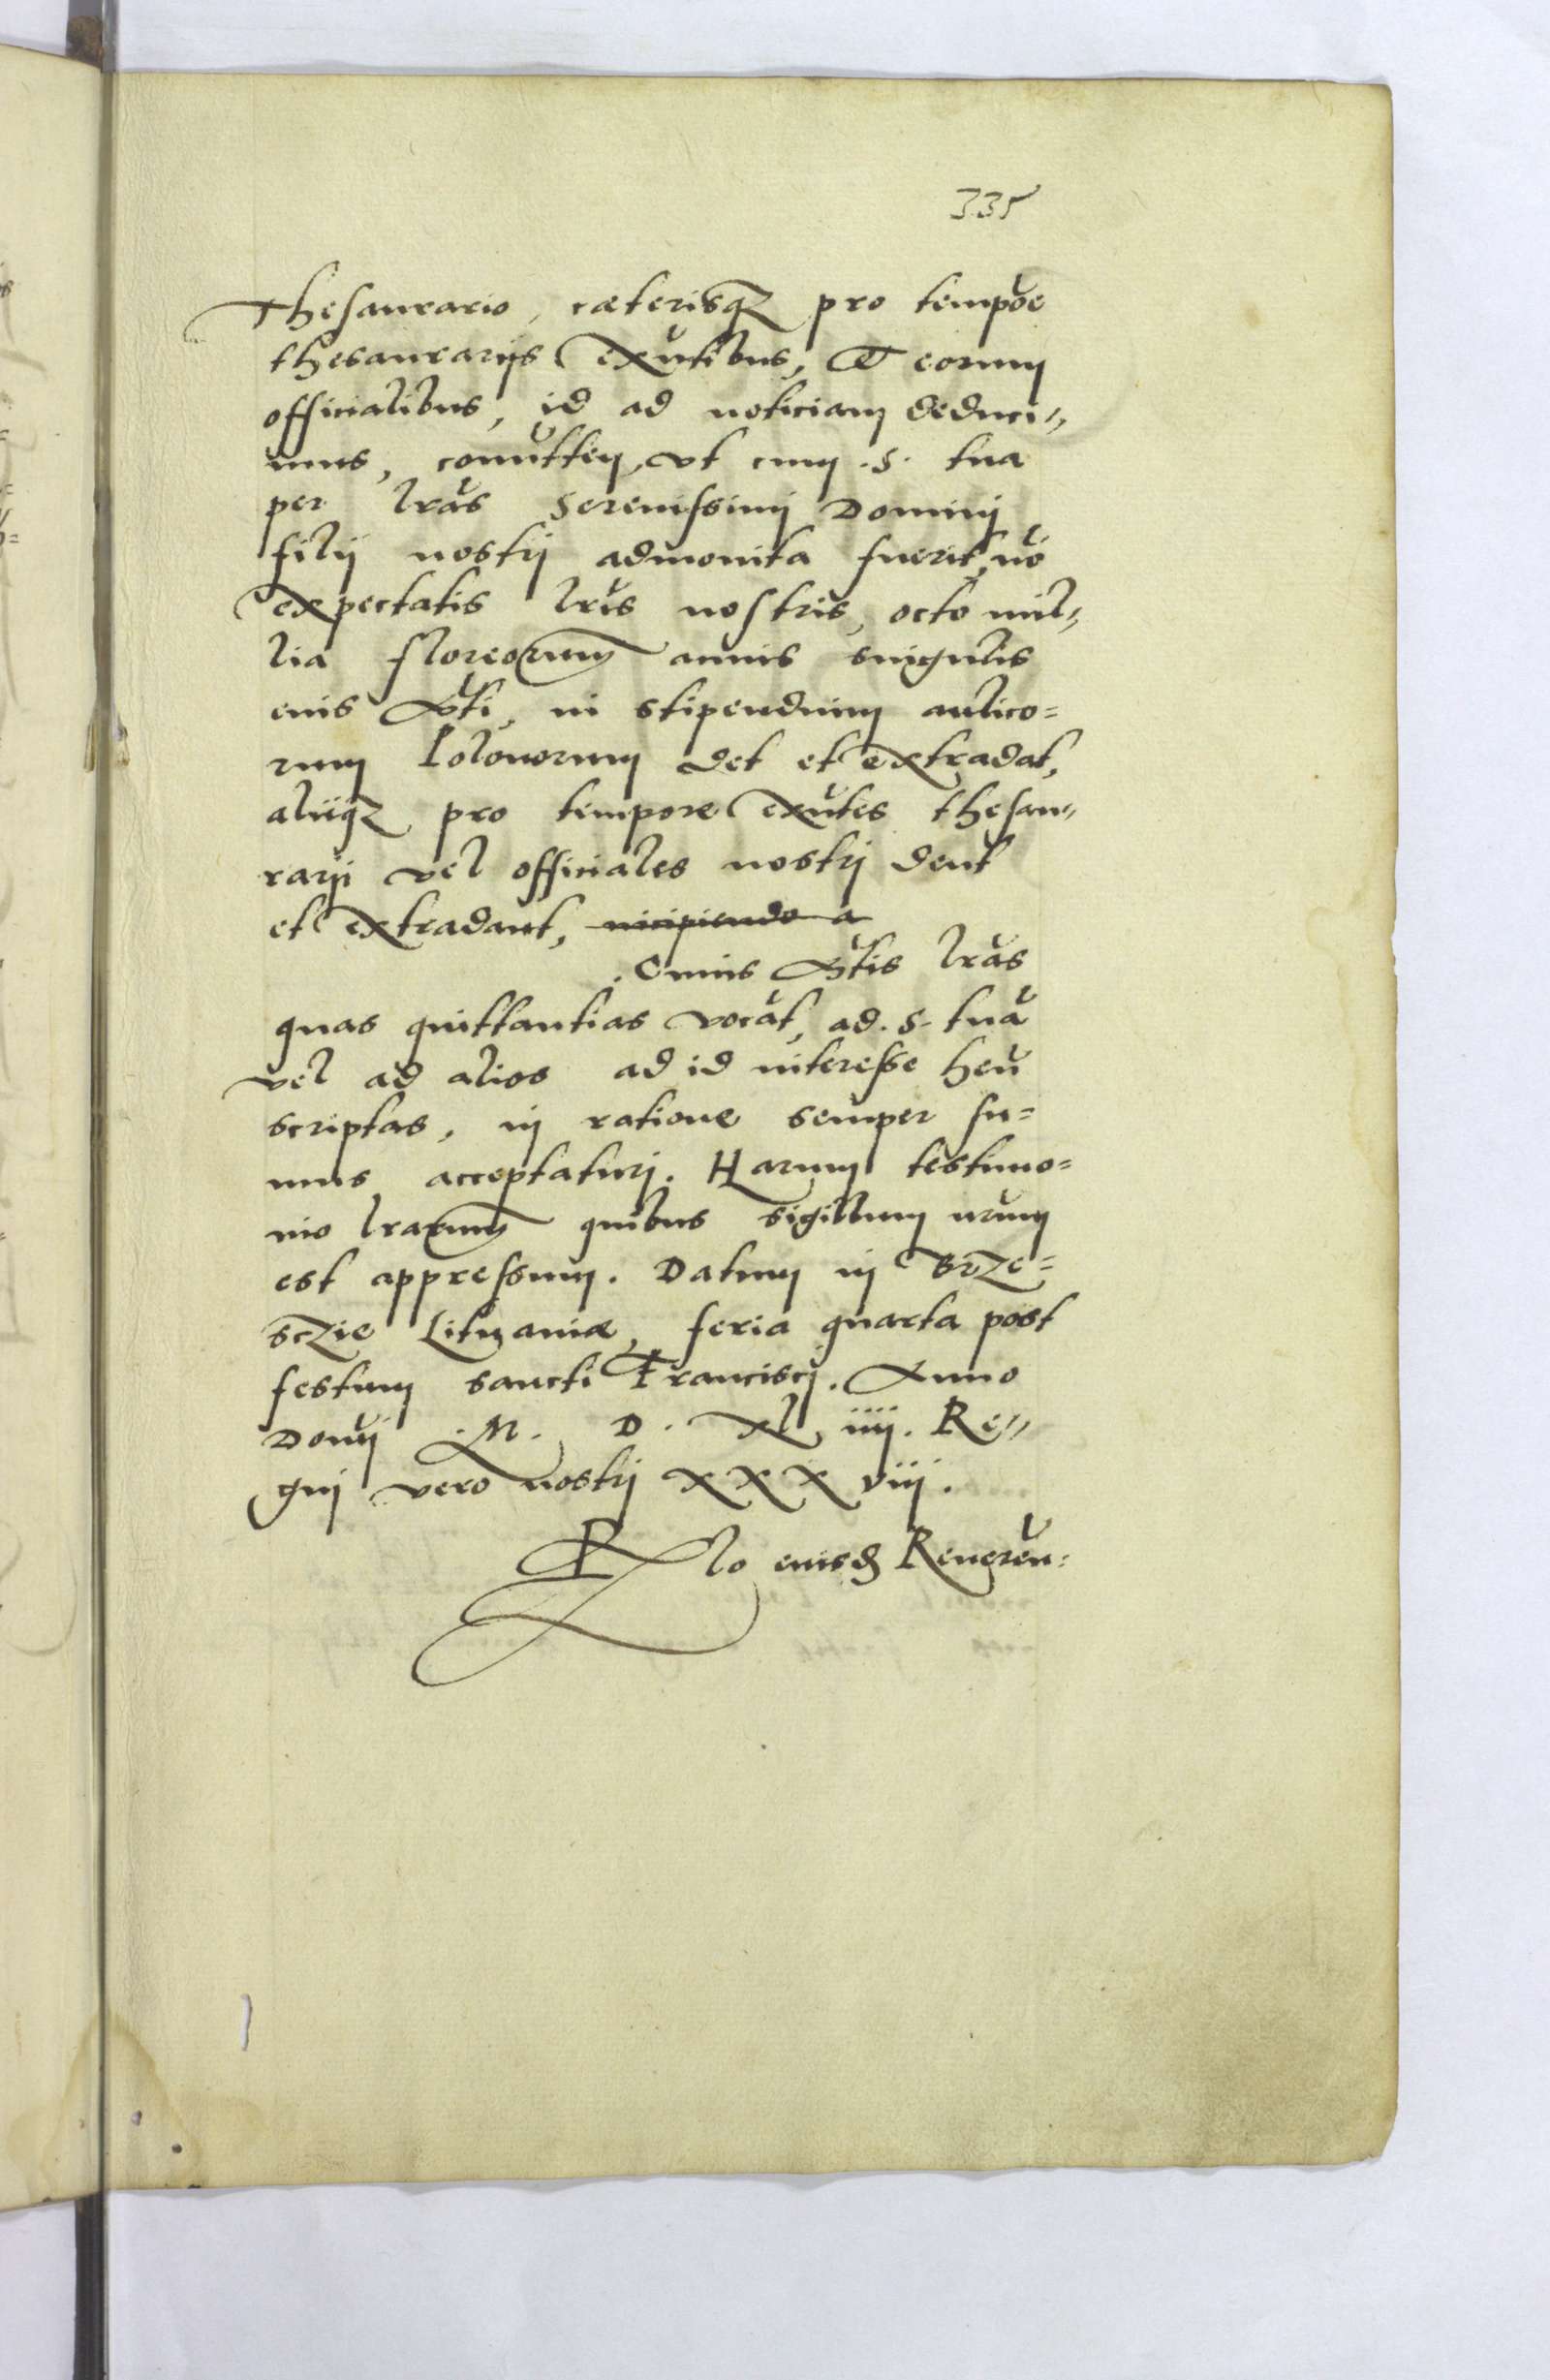 335
Thesaurario, cæterisq₃ pro tempōe
thesaurarijs exn̄tibus, Et eorum
officialibus, id ad noticiam deduci„
mus, comīttēn, vt cum .S. tua
per lrās Serenissimi Dominj
filij nostrj admonita fuerit, nō
expectatis lrīs nostris, octo mil„
lia floreorum annis singulis
eius in stipendium aulico=
rum Polonorum det et extradat,
aliiq₃ pro tempore exn̄tes thesau„
rarij vel officiales nostrj dent
et extradant, incipiendo a
. Cuius lrās
quas quittantias vocāt, ad .S. tuā
vel ad alios ad id interesse hēn
scriptas, in ratione semper su=
mus acceptaturj. Harum testimo=
nio lrarum quibus sigillum nr̄um
est appressum. Datum in Brze=
sczie Lituaniæ, feria quarta post
festum sancti Franciscj. Anno
Domīj .M. D. xl iiij. Re„
gnj vero nostrj xxx viij.
Rlo eiusd Reueren̄: